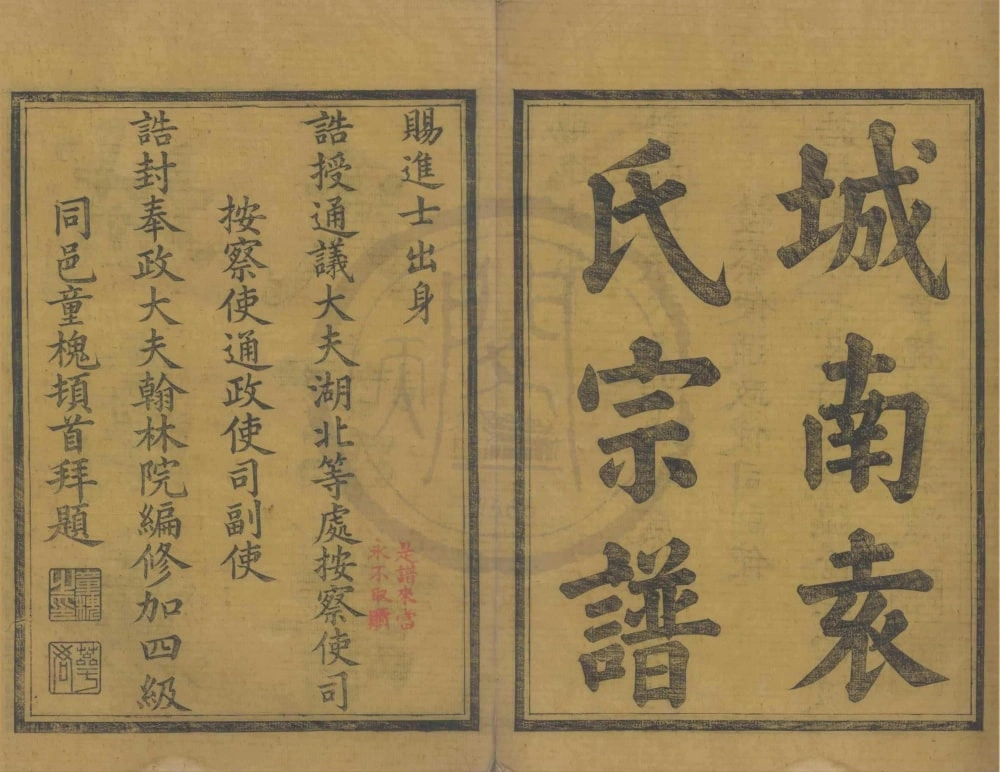 城南袁
氏宗譜
賜進士出身
誥授通議大夫湖北等處按察使司
按察使通政使司副使
誥封奉政大夫翰林院編修加四級
同邑童槐頓首拜題
童槐之印
是譜來宮
永不取贖